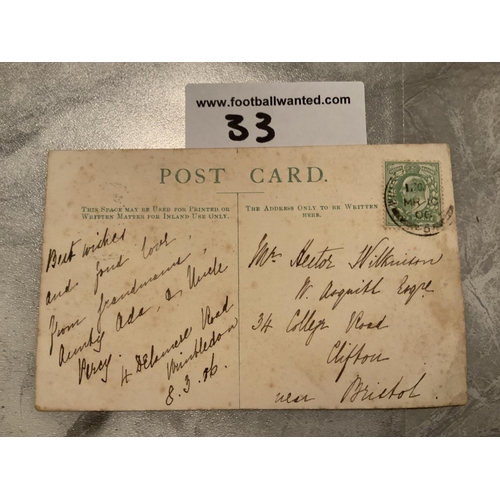 www.footballwanted.com
33
POST CARD.
THIS SPACE MAY BE USED FOR PRINTED OR
WRITTEN MATTER FOR INLAND USE ONLY.
THE ADDRESS ONLY TO BE WRITTEN
HERE.
Best wishes
and fond love
from grandmama,
Aunty Ada, & Uncle
Percy.
4 Road
Wimbledon
8.3.06.
Mr Hector Wilkinson
W. Asquith Esqre
34 College Road
Clifton
near Bristol.
MR
06